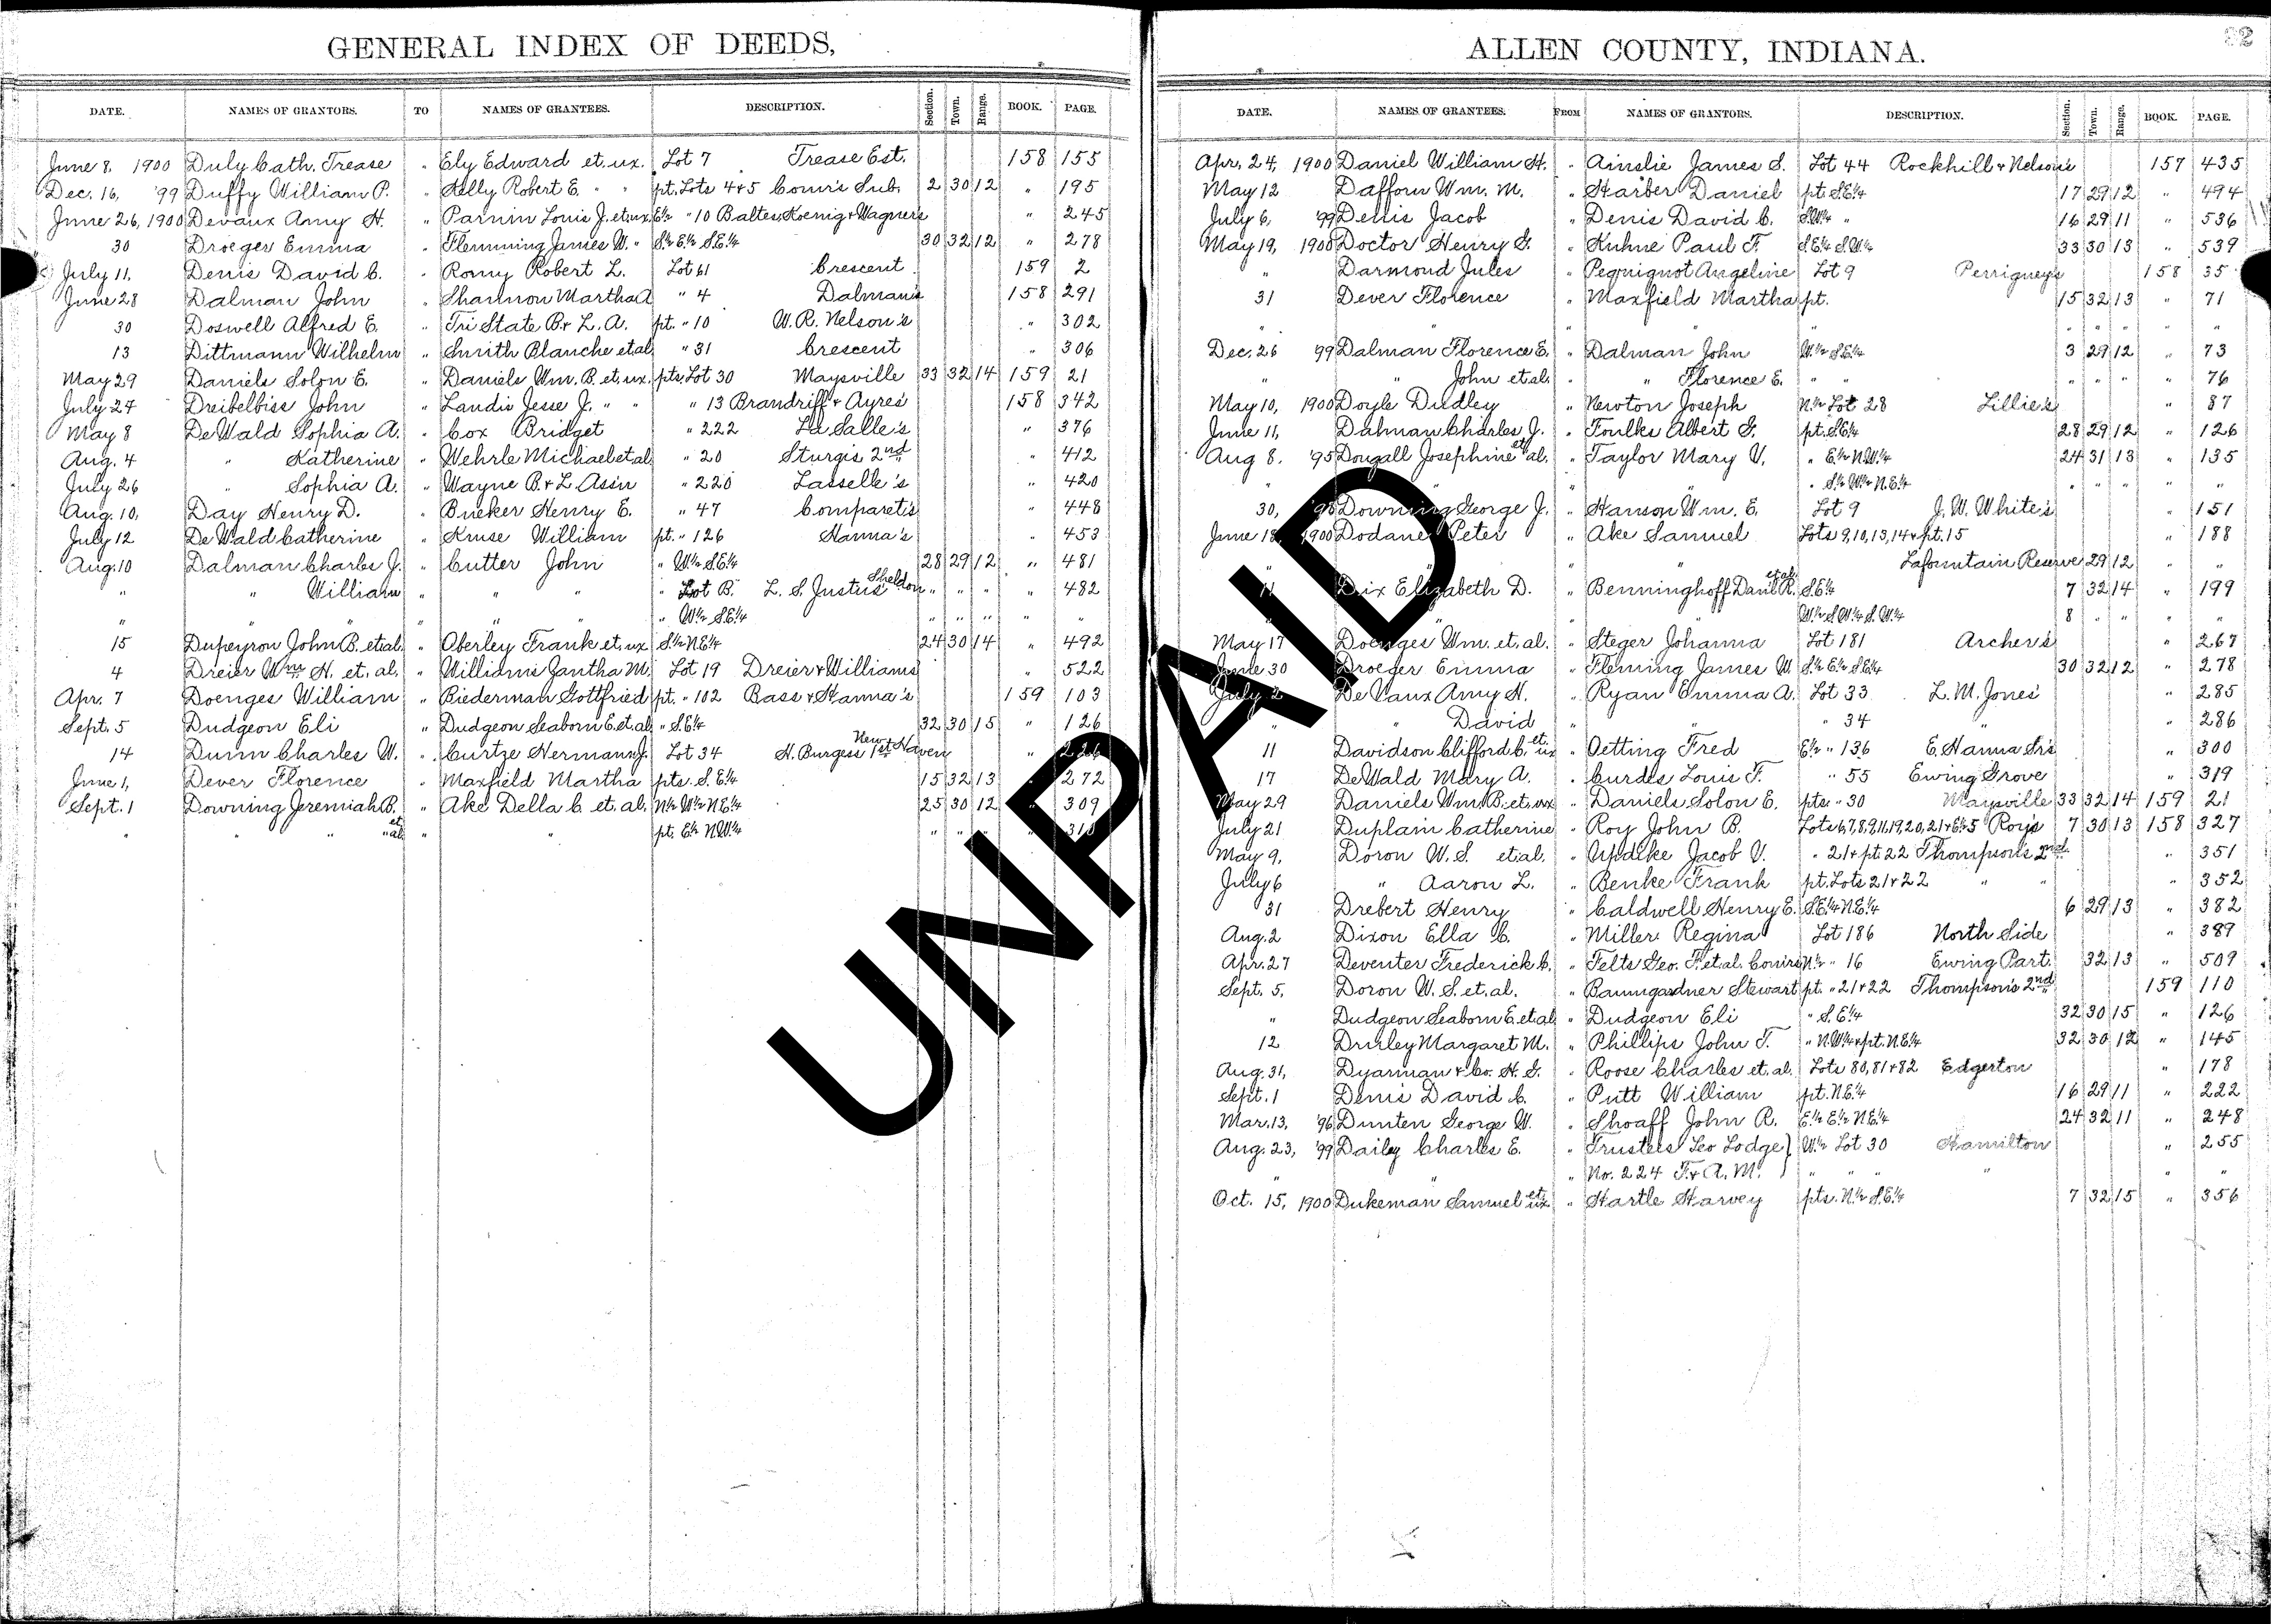 GENERAL INDEX OF DEEDS,
DATE. NAMES OF GRANTORS. TO NAMES OF GRANTEES. DESCRIPTION. Section. Town. Range. BOOK. PAGE.
June 8, 1900 Duly Cath. Trease " Ely Edward et. ux. Lot 7 Trease Est. 158 155
Dec. 16, '99 Duffy William P. " Kelly Robert E. " " pt. Lots 4+5 Com'rs Sub. 2 30 12 " 195
June 26, 1900 Devaux Amy H. " Parnin Louis J. et ux. E½ " 10 Baltes, Koenig + Wagner's " 245
30 Droeger Emma " Flemming James W. " S½ E½ S.E.¼ 30 32 12 " 278
July 11, Denis David C. " Romy Robert L. Lot 61 Crescent 159 2
June 28 Dalman John " Shannon Martha A " 4 Dalman's 158 291
30 Doswell Alfred E. " Tri State B. + L. A. pt. " 10 W. R. Nelson's " 302
13 Dittmann Wilhelm " Smith Blanche et al. " 31 Crescent " 306
May 29 Daniels Solon E. " Daniels Wm. B. et. ux. pts. Lot 30 Maysville 33 32 14 159 21
July 27 Dreibelbiss John " Landis Jesse J. " " " 13 Brandriff + Ayres' 158 342
May 8 DeWald Sophia A. " Cox Bridget " 222 La Salle's " 376
Aug. 4 " Katherine " Wehrle Michael et al " 20 Sturgis 2nd " 412
July 26 " Sophia A. " Wayne B. + L. Ass'n " 220 Lasselle's " 420
Aug. 10, Day Henry D. " Bueker Henry E. " 47 Comparet's " 448
July 12 DeWald Catherine " Kruse William pt. " 126 Hanna's " 453
Aug. 10 Dalman Charles J. " Cutter John " W½ S.E.¼ 28 29 12 " 481
" " William " " " " Lot B. L. S. Justus' Sheldon " " " " 482
" " " " " " W½ S.E.¼ " " " " "
15 Dupeyron John B. et al. " Oberley Frank et. ux. S½ N.E.¼ 24 30 14 " 492
4 Dreier Wm H. et. al. " Williams Jantha M. Lot 19 Dreier + Williams' " 522
Apr. 7 Doenges William " Biederman Gottfried pt. " 102 Bass + Hanna's 159 103
Sept. 5 Dudgeon Eli " Dudgeon Seaborn E. et. al. " S.E.¼ 32 30 15 " 126
14 Dunn Charles W. " Curtze Hermann J. Lot 34 H. Burgess 1st New Haven "
June 1, Dever Florence " Maxfield Martha pts. S. E.¼ 15 32 13 272
Sept. 1 Downing Jeremiah B. " Ake Della C. et. al. N½ W½ N.E.¼ 25 30 12 " 309
" " " et al " " pt. E½ N.W.¼ " " "
ALLEN COUNTY, INDIANA.
DATE. NAMES OF GRANTEES. FROM NAMES OF GRANTORS. DESCRIPTION. Section. Town. Range. BOOK. PAGE.
Apr. 24, 1900 Daniel William H. " Ainslie James S. Lot 44 Rockhill + Nelson's 157 435
May 12 Dafforn Wm. M. " Harber Daniel pt. S.E.¼ 17 29 12 " 494
July 6, '99 Denis Jacob " Denis David C. S.W.¼ " 16 29 11 " 536
May 19, 1900 Doctor Henry G. " Kuhne Paul F. S.E.¼ S.W.¼ 33 30 13 " 539
" Darmond Jules " Pequignot Angeline Lot 9 Perrigney's 158 35
31 Dever Florence " Maxfield Martha pt. 15 32 13 " 71
" " " " " " " " "
Dec. 26 '99 Dalman Florence E. " Dalman John W.½ S.E.¼ 3 29 12 " 73
" " John et al. " " Florence E. " " " " " " 76
May 10, 1900 Doyle Dudley " Newton Joseph N.½ Lot 28 Lillie's " 87
June 11, Dalman Charles J. " Foulks Albert G. pt. S.E.¼ 28 29 12 " 126
Aug 8. '95 Dougall Josephine et al. " Taylor Mary V. " E.½ N.W.¼ 24 31 13 " 135
" " " " S.½ W.½ N.E.¼ " " " " "
30, '98 Downing George J. " Hanson Wm. E. Lot 9 J. W. White's " 151
June 18, 1900 Dodane Peter " Ake Samuel Lots 9,10,13,14+pt.15 " 188
" " " " Lafountain Reserve 29 12 " "
11 Dix Elizabeth D. " Benninghoff Dan'l R. et al. S.E.¼ 7 32 14 " 199
W½ S.W.¼ S.W.¼ 8 " " " "
May 17 Doenges Wm. et. al. " Steger Johanna Lot 181 Archer's " 267
June 30 Droeger Emma " Fleming James W. S.½ E.½ S.E.¼ 30 32 12 " 278
July 2 DeVaux Amy H. " Ryan Emma A. Lot 33 L. M. Jones' " 285
" " David " " " 34 " 286
11 Davidson Clifford C. et ux " Oetting Fred E½ " 136 E. Hanna Sr's " 300
17 DeWald Mary A. " Curdes Louis F. " 55 Ewing Grove " 319
May 29 Daniels Wm. B. et. ux " Daniels Solon E. pts. " 30 Maysville 33 32 14 159 21
July 21 Duplain Catherine " Roy John B. Lots 6,7,8,9,11,19,20,21+E½5 Roy's 7 30 13 158 327
May 9, Doron W. S. et al. " Updike Jacob V. " 21+pt. 22 Thompson's 2nd " 351
July 6 " Aaron L. " Benke Frank pt. Lots 21+22 " " " 352
31 Drebert Henry " Caldwell Henry E. S.E.¼ N.E.¼ 6 29 13 " 382
Aug. 2 Dixon Ella C. " Miller Regina Lot 186 North Side " 389
Apr. 27 Deventer Frederick C. " Felts Geo. F. et. al. Com'rs N½ " 16 Ewing Part. 32 13 " 509
Sept. 5, Doron W. S. et. al. " Baumgardner Stewart pt. " 21+22 Thompson's 2nd 159 110
" Dudgeon Seaborn E. et al. " Dudgeon Eli " S. E.¼ 32 30 15 " 126
12 Druley Margaret M. " Phillips John T. " N.W.¼+pt. N.E.¼ 32 30 12 " 145
Aug. 31, Dyarman + Co. H. G. " Roose Charles et. al. Lots 80,81+82 Edgerton " 178
Sept. 1 Denis David C. " Putt William pt. N.E.¼ 16 29 11 " 222
Mar. 13, '96 Dunten George W. " Shoaff John R. E.½ E.½ N.E.¼ 24 32 11 " 248
Aug. 23, '99 Dailey Charles E. " Trustees Leo Lodge } W.½ Lot 30 Hamilton " 255
" " " No. 224 F. + A. M. } " " " " " "
Oct. 15, 1900 Dukeman Samuel et ux. " Hartle Harvey pts. N.½ S.E.¼ 7 32 15 " 356
UNPAID